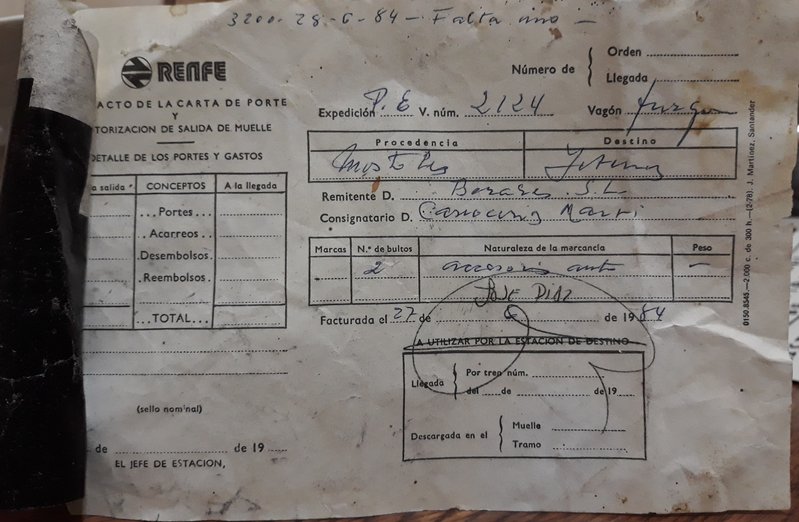 3200. 28-6-84 - Falta uno -
RENFE
ACTO DE LA CARTA DE PORTE
Y
TORIZACION DE SALIDA DE MUELLE
DETALLE DE LOS PORTES Y GASTOS
a salida CONCEPTOS A la llegada
...Portes...
...Acarreos...
Desembolsos.
Reembolsos.
...TOTAL...
(sello nominal)
de de 19
EL JEFE DE ESTACION,
Número de { Orden
Llegada
Expedición P.E V. núm. 2124 Vagón furgon
Procedencia Destino
Mostoles
Remitente D. S.L
Consignatario D.
Marcas N.º de bultos Naturaleza de la mercancía Peso
2 accesorios auto -
JOSE DIAZ
Facturada el 27 de 6 de 1984
A UTILIZAR POR LA ESTACION DE DESTINO
Llegada { Por tren núm.
del de de 19
Descargada en el { Muelle
Tramo
0150.8545.-2.000 c. de 300 h.-(2-78). J. Martínez. Santander